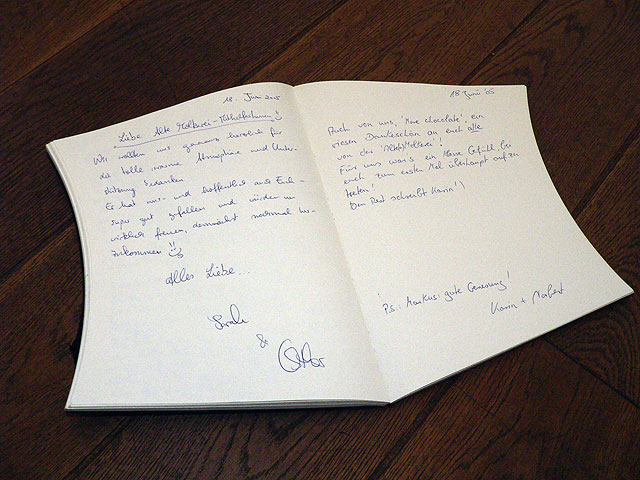 18. Juni 2005
Liebe Alte Molkerei -
Wir wollten uns ganz herzlich für
die tolle, warme Atmosphäre und Unter-
stützung bedanken.
Es hat uns- und hoffentlich auch Euch-
super gut gefallen und würden uns
wirklich freuen, demnächst nochmal her-
zukommen
Alles Liebe...
Sarah
&
18 Juni '05
Auch von uns, 'More chocolate', ein
riesen Dankeschön an euch alle
von der '(Alte) Molkerei'!
Für uns war's ein Gefühl, bei
euch zum ersten Mal überhaupt aufzu
treten!
Den Rest schreibt Karin!)
Ps.: Markus: gute Genesung!
Karin + Norbert